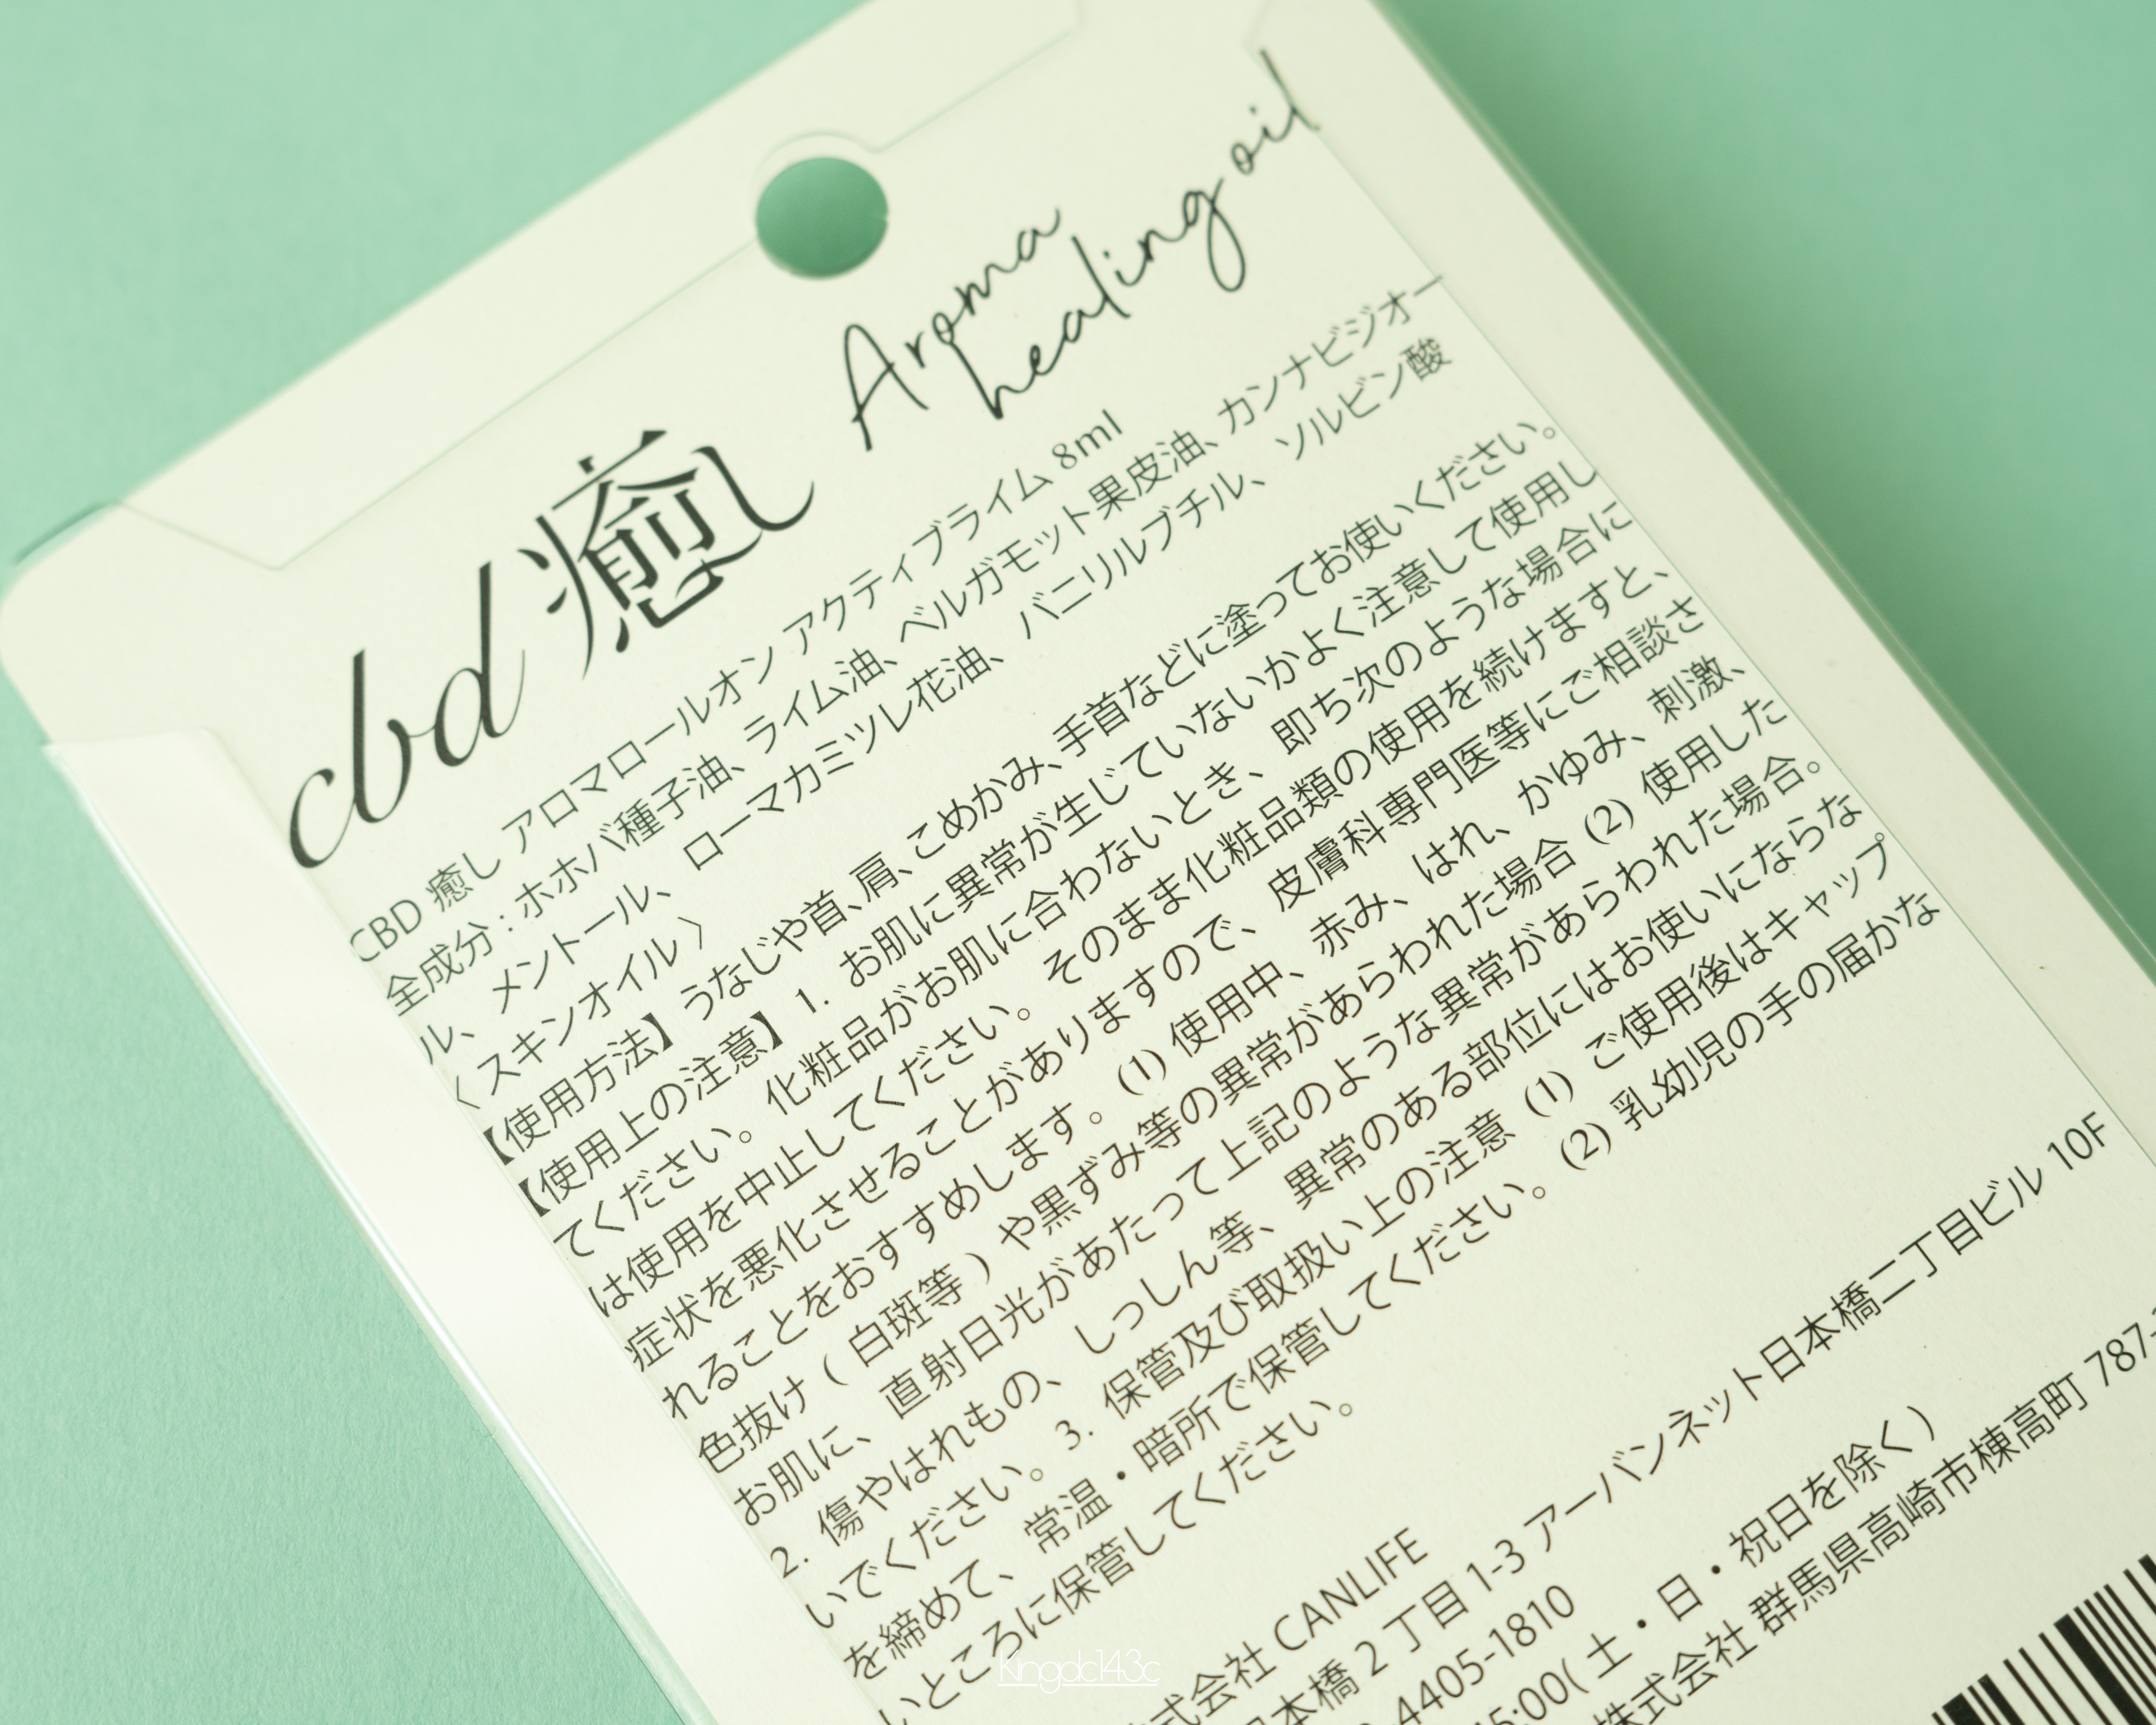 Aroma
healing oil
cbd 癒し
CBD 癒し アロマロールオン アクティブライム 8ml
全成分 : ホホバ種子油、ライム油、ベルガモット果皮油、カンナビジオー
ル、メントール、ローマカミツレ花油、バニリルブチル、ソルビン酸
〈 スキンオイル 〉
【使用方法】うなじや首、肩、こめかみ、手首などに塗ってお使いください。
【使用上の注意】1. お肌に異常が生じていないかよく注意して使用し
てください。化粧品がお肌に合わないとき、即ち次のような場合に
は使用を中止してください。そのまま化粧品類の使用を続けますと、
症状を悪化させることがありますので、皮膚科専門医等にご相談さ
れることをおすすめします。(1) 使用中、赤み、はれ、かゆみ、刺激、
色抜け ( 白斑等 ) や黒ずみ等の異常があらわれた場合 (2) 使用した
お肌に、直射日光があたって上記のような異常があらわれた場合。
2. 傷やはれもの、しっしん等、異常のある部位にはお使いにならな
いでください。3. 保管及び取扱い上の注意 (1) ご使用後はキャップ
を締めて、常温・暗所で保管してください。(2) 乳幼児の手の届かな
いところに保管してください。
式会社 CANLIFE
本橋 2 丁目 1-3 アーバンネット日本橋二丁目ビル 10F
4405-1810
:00( 土・日・祝日を除く )
株式会社 群馬県高崎市棟高町 787-
Kingdc143c